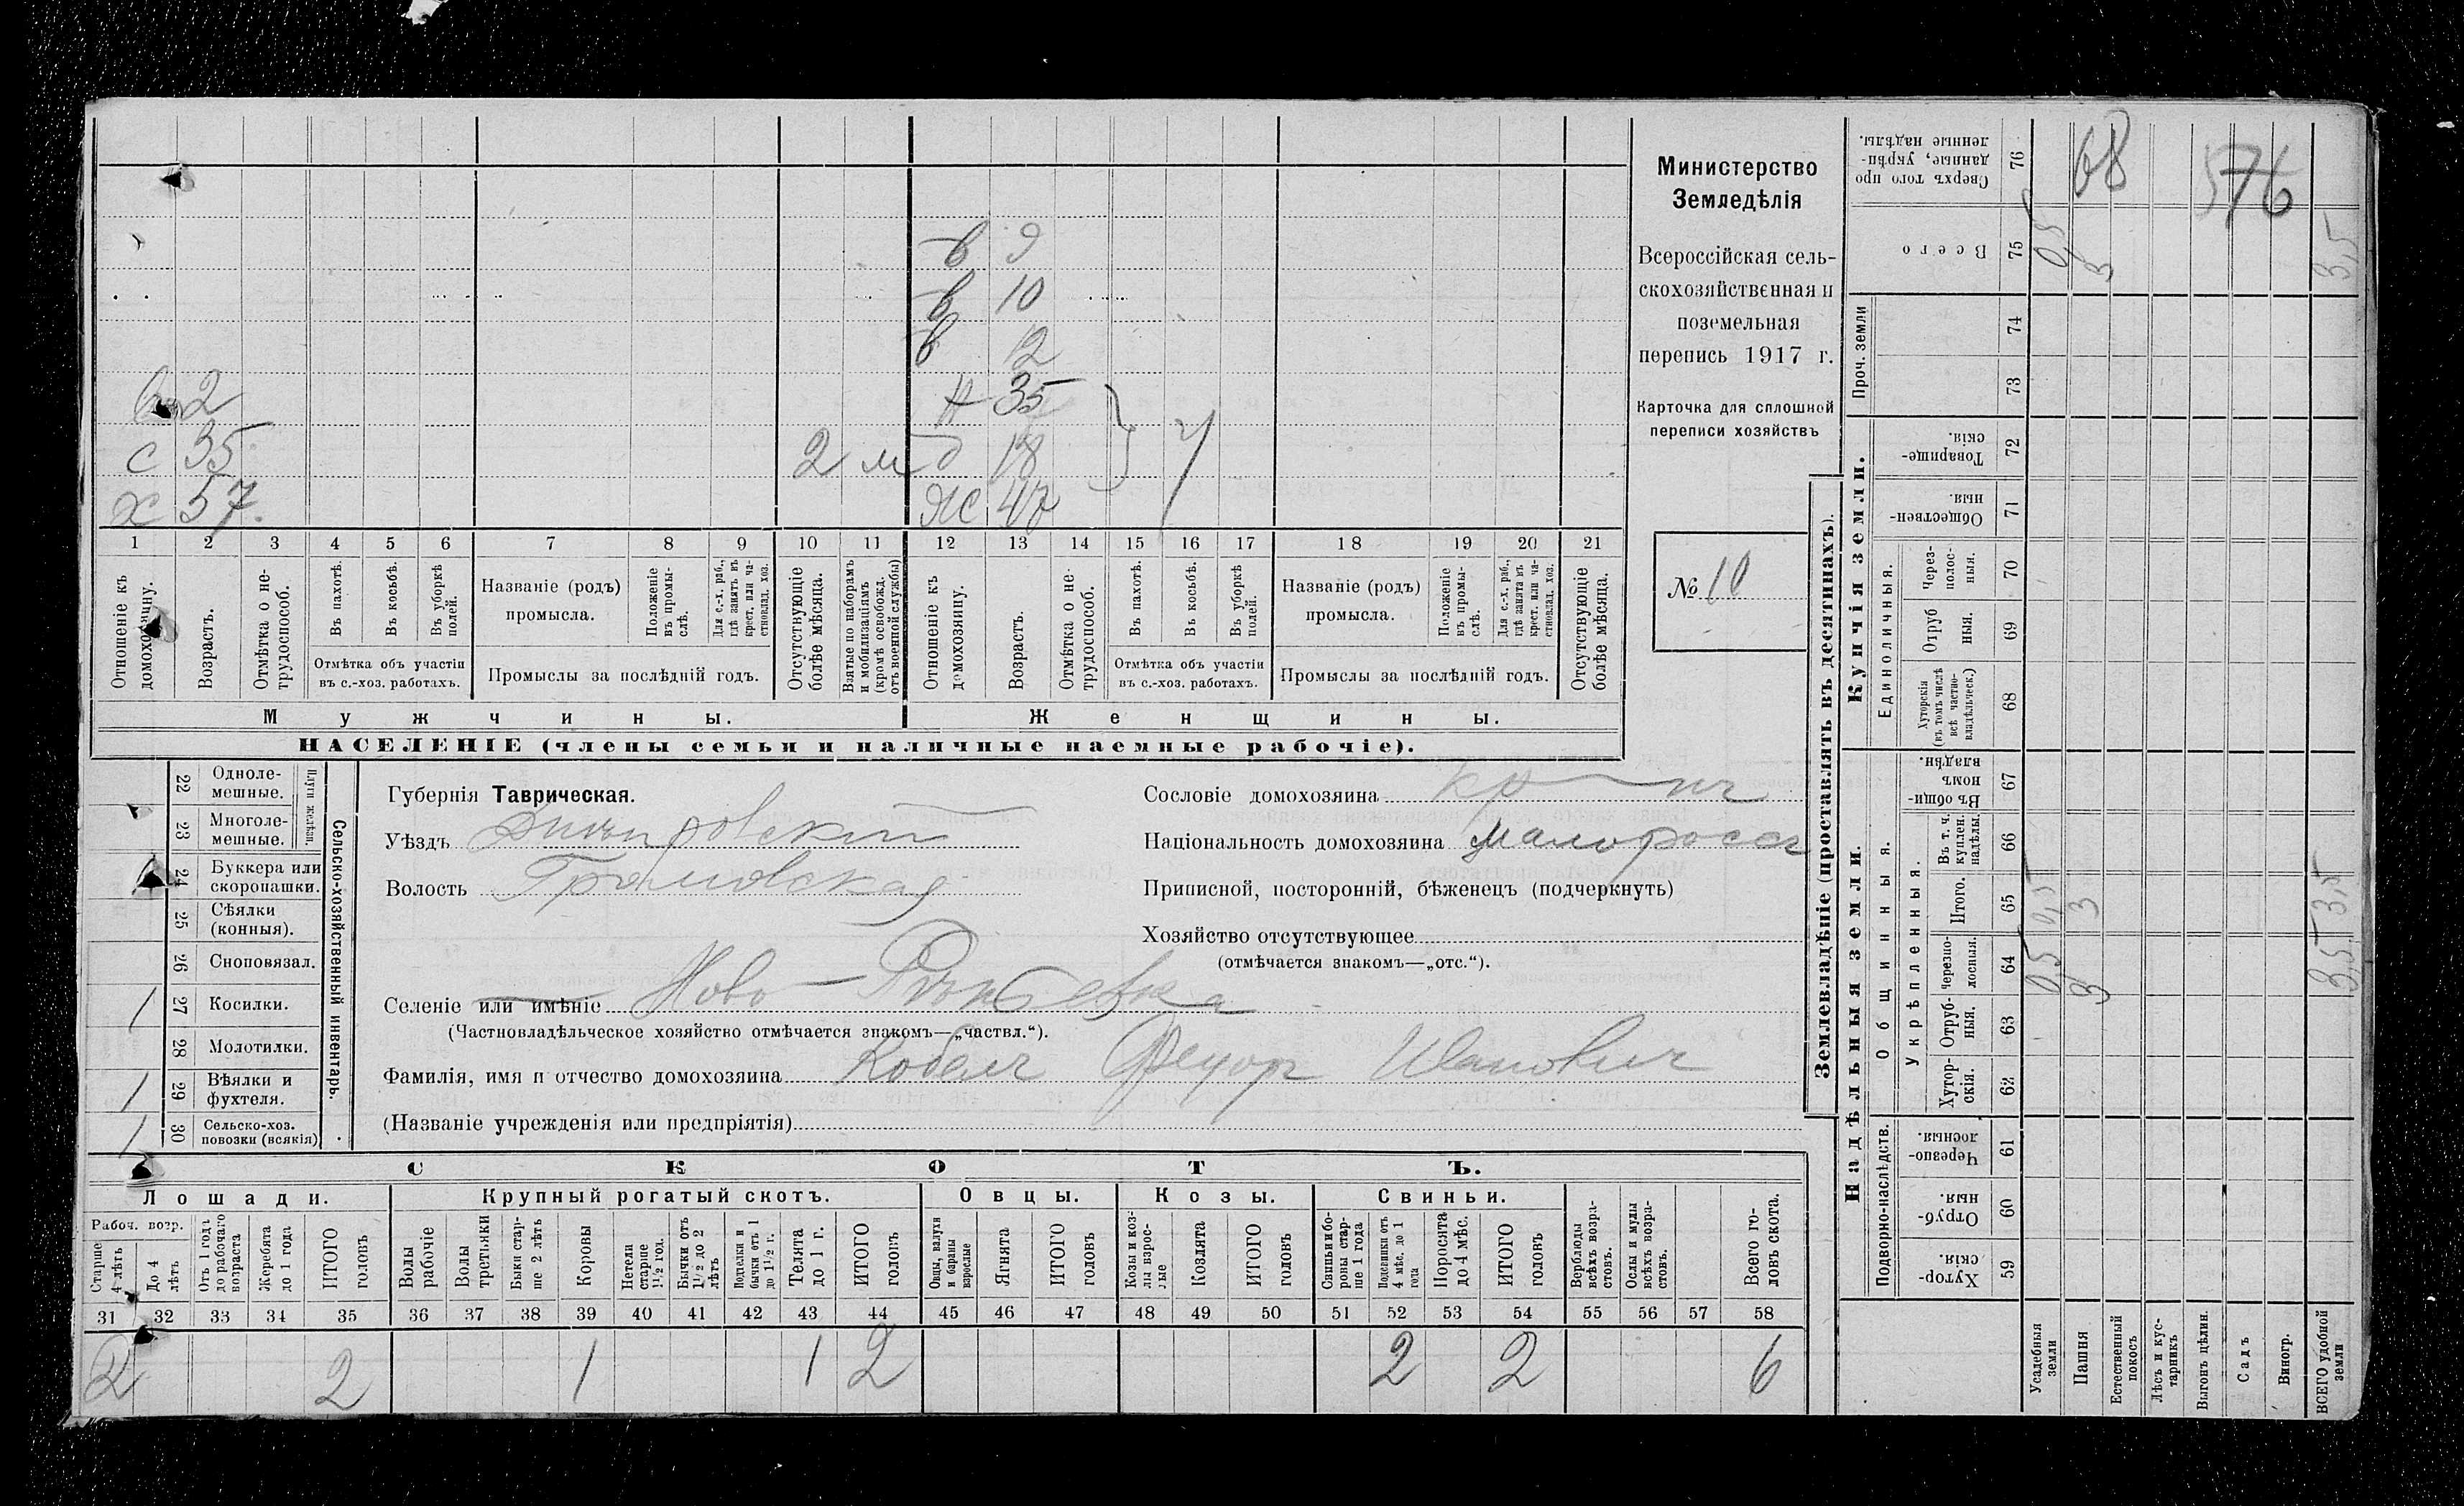 Министерство
Земледѣлія
Всероссійская сель-
скохозяйственная и
поземельная
перепись 1917 г.
Карточка для сплошной
переписи хозяйствъ
№ 10
в 9
в 10
в 12
2 Н 35
с 35 2 м д 18
х 57 ж 47
1 2 3 4 5 6 7 8 9 10 11 12 13 14 15 16 17 18 19 20 21
Отношеніе къ домохозяину.
Возрастъ.
Отмѣтка о не-трудоспособ.
Въ пахотѣ.
Въ косьбѣ.
Въ уборкѣ полей.
Отмѣтка объ участіи
въ с.-хоз. работахъ.
Названіе (родъ)
промысла.
Положеніе въ промы-слѣ.
Для с.-х. раб., гдѣ занятъ въ крест. или ча-стновлад. хоз.
Промыслы за послѣдній годъ.
Отсутствующіе болѣе мѣсяца.
Взятые по наборамъ и мобилизаціямъ (кромѣ освобожд. отъ военной службы)
Отношеніе къ домохозяину.
Возрастъ.
Отмѣтка о не-трудоспособ.
Въ пахотѣ.
Въ косьбѣ.
Въ уборкѣ полей.
Отмѣтка объ участіи
въ с.-хоз. работахъ.
Названіе (родъ)
промысла.
Положеніе въ промы-слѣ.
Для с.-х. раб., гдѣ занята въ крест. или ча-стновлад. хоз.
Промыслы за послѣдній годъ.
Отсутствующіе болѣе мѣсяца.
Мужчины.
Женщины.
НАСЕЛЕНІЕ (члены семьи и наличные наемные рабочіе).
Сельско-хозяйственный инвентарь.
Плуги желѣзн.
22 Одноле-мешные.
23 Многоле-мешные.
24 Буккера или скоропашки.
25 Сѣялки (конныя).
26 Сноповязал.
1 27 Косилки.
28 Молотилки.
1 29 Вѣялки и фухтеля.
1 30 Сельско-хоз. повозки (всякія)
Губернія Таврическая.
Уѣздъ Днѣпровскій
Волость Громовская
Селеніе или имѣніе Ново-
(Частновладѣльческое хозяйство отмѣчается знакомъ—„частвл.“).
Фамилія, имя и отчество домохозяина Кобецъ Федоръ Ивановичъ
(Названіе учрежденія или предпріятія)
Сословіе домохозяина кр-нъ
Національность домохозяина малороссъ
Приписной, посторонній, бѣженецъ (подчеркнуть)
Хозяйство отсутствующее
(отмѣчается знакомъ—„отс.“).
СКОТЪ.
Лошади. Крупный рогатый скотъ. Овцы. Козы. Свиньи.
Рабоч. возр.
Старше 4 лѣтъ
До 4 лѣтъ
Отъ 1 года до рабочаго возраста
Жеребята до 1 года
ИТОГО головъ
Волы рабочіе
Волы третьяки
Быки стар-ше 2 лѣтъ
Коровы
Нетели старше 1½ год.
Бычки отъ 1½ до 2 лѣтъ
Подтелки и бычки отъ 1 до 1½ г.
Телята до 1 г.
ИТОГО головъ
Овцы, валухи и бараны взрослые
Ягнята
ИТОГО головъ
Козы и коз-лы взрос-лые
Козлята
ИТОГО головъ
Свиньи и бо-ровы стар-ше 1 года
Подсвинки отъ 4 мѣс. до 1 года
Поросята до 4 мѣс.
ИТОГО головъ
Верблюды всѣхъ возра-стовъ.
Ослы и мулы всѣхъ возра-стовъ.
Всего го-ловъ скота.
31 32 33 34 35 36 37 38 39 40 41 42 43 44 45 46 47 48 49 50 51 52 53 54 55 56 57 58
2 2 1 1 2 2 2 6
Землевладѣніе (проставлять въ десятинахъ).
Надѣльныя земли.
Купчія земли.
Проч. земли
Подворно-наслѣдств.
Общинныя.
Укрѣпленныя.
Единоличныя.
Сверхъ того про данные, укрѣп-ленные надѣлы. 76 68 576
Всего 75 0,5 3 3,5
74
73
Товарище-скія. 72
Обществен-ныя. 71
Через-полос-ныя. 70
Отруб ныя. 69
Хуторскія (въ томъ числѣ всѣ частно-владѣльческ.) 68
Въ общи-номъ владѣн. 67
Въ т. ч. куплен. надѣлы. 66
Итого. 65 0,5 3 3,5
Черезпо-лосныя. 64 0,5 3 3,5
Отруб-ныя. 63
Хутор-скія. 62
Черезпо-лосныя. 61
Отруб-ныя. 60
Хутор-скія. 59
Усадебныя земли
Пашня
Естественный покосъ
Лѣсъ и кус-тарникъ
Выгонъ цѣлин.
Садъ
Виногр.
ВСЕГО удобной земли